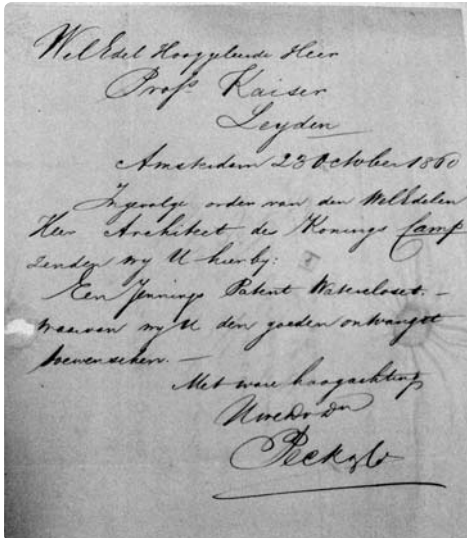 WelEdel Hooggeleerde Heer
Profr Kaiser
Leyden
Amsterdam 23 October 1860
Ingevolge orden van den WelEdelen
Heer Architect des Konings Camp
zenden wy U hierby:
Een Jennings Patent Watercloset. –
waarvan wy U den goeden ontvangst
toewenschen. –
Met ware hoogachting
UwEd. D. Dn
Peck & Co